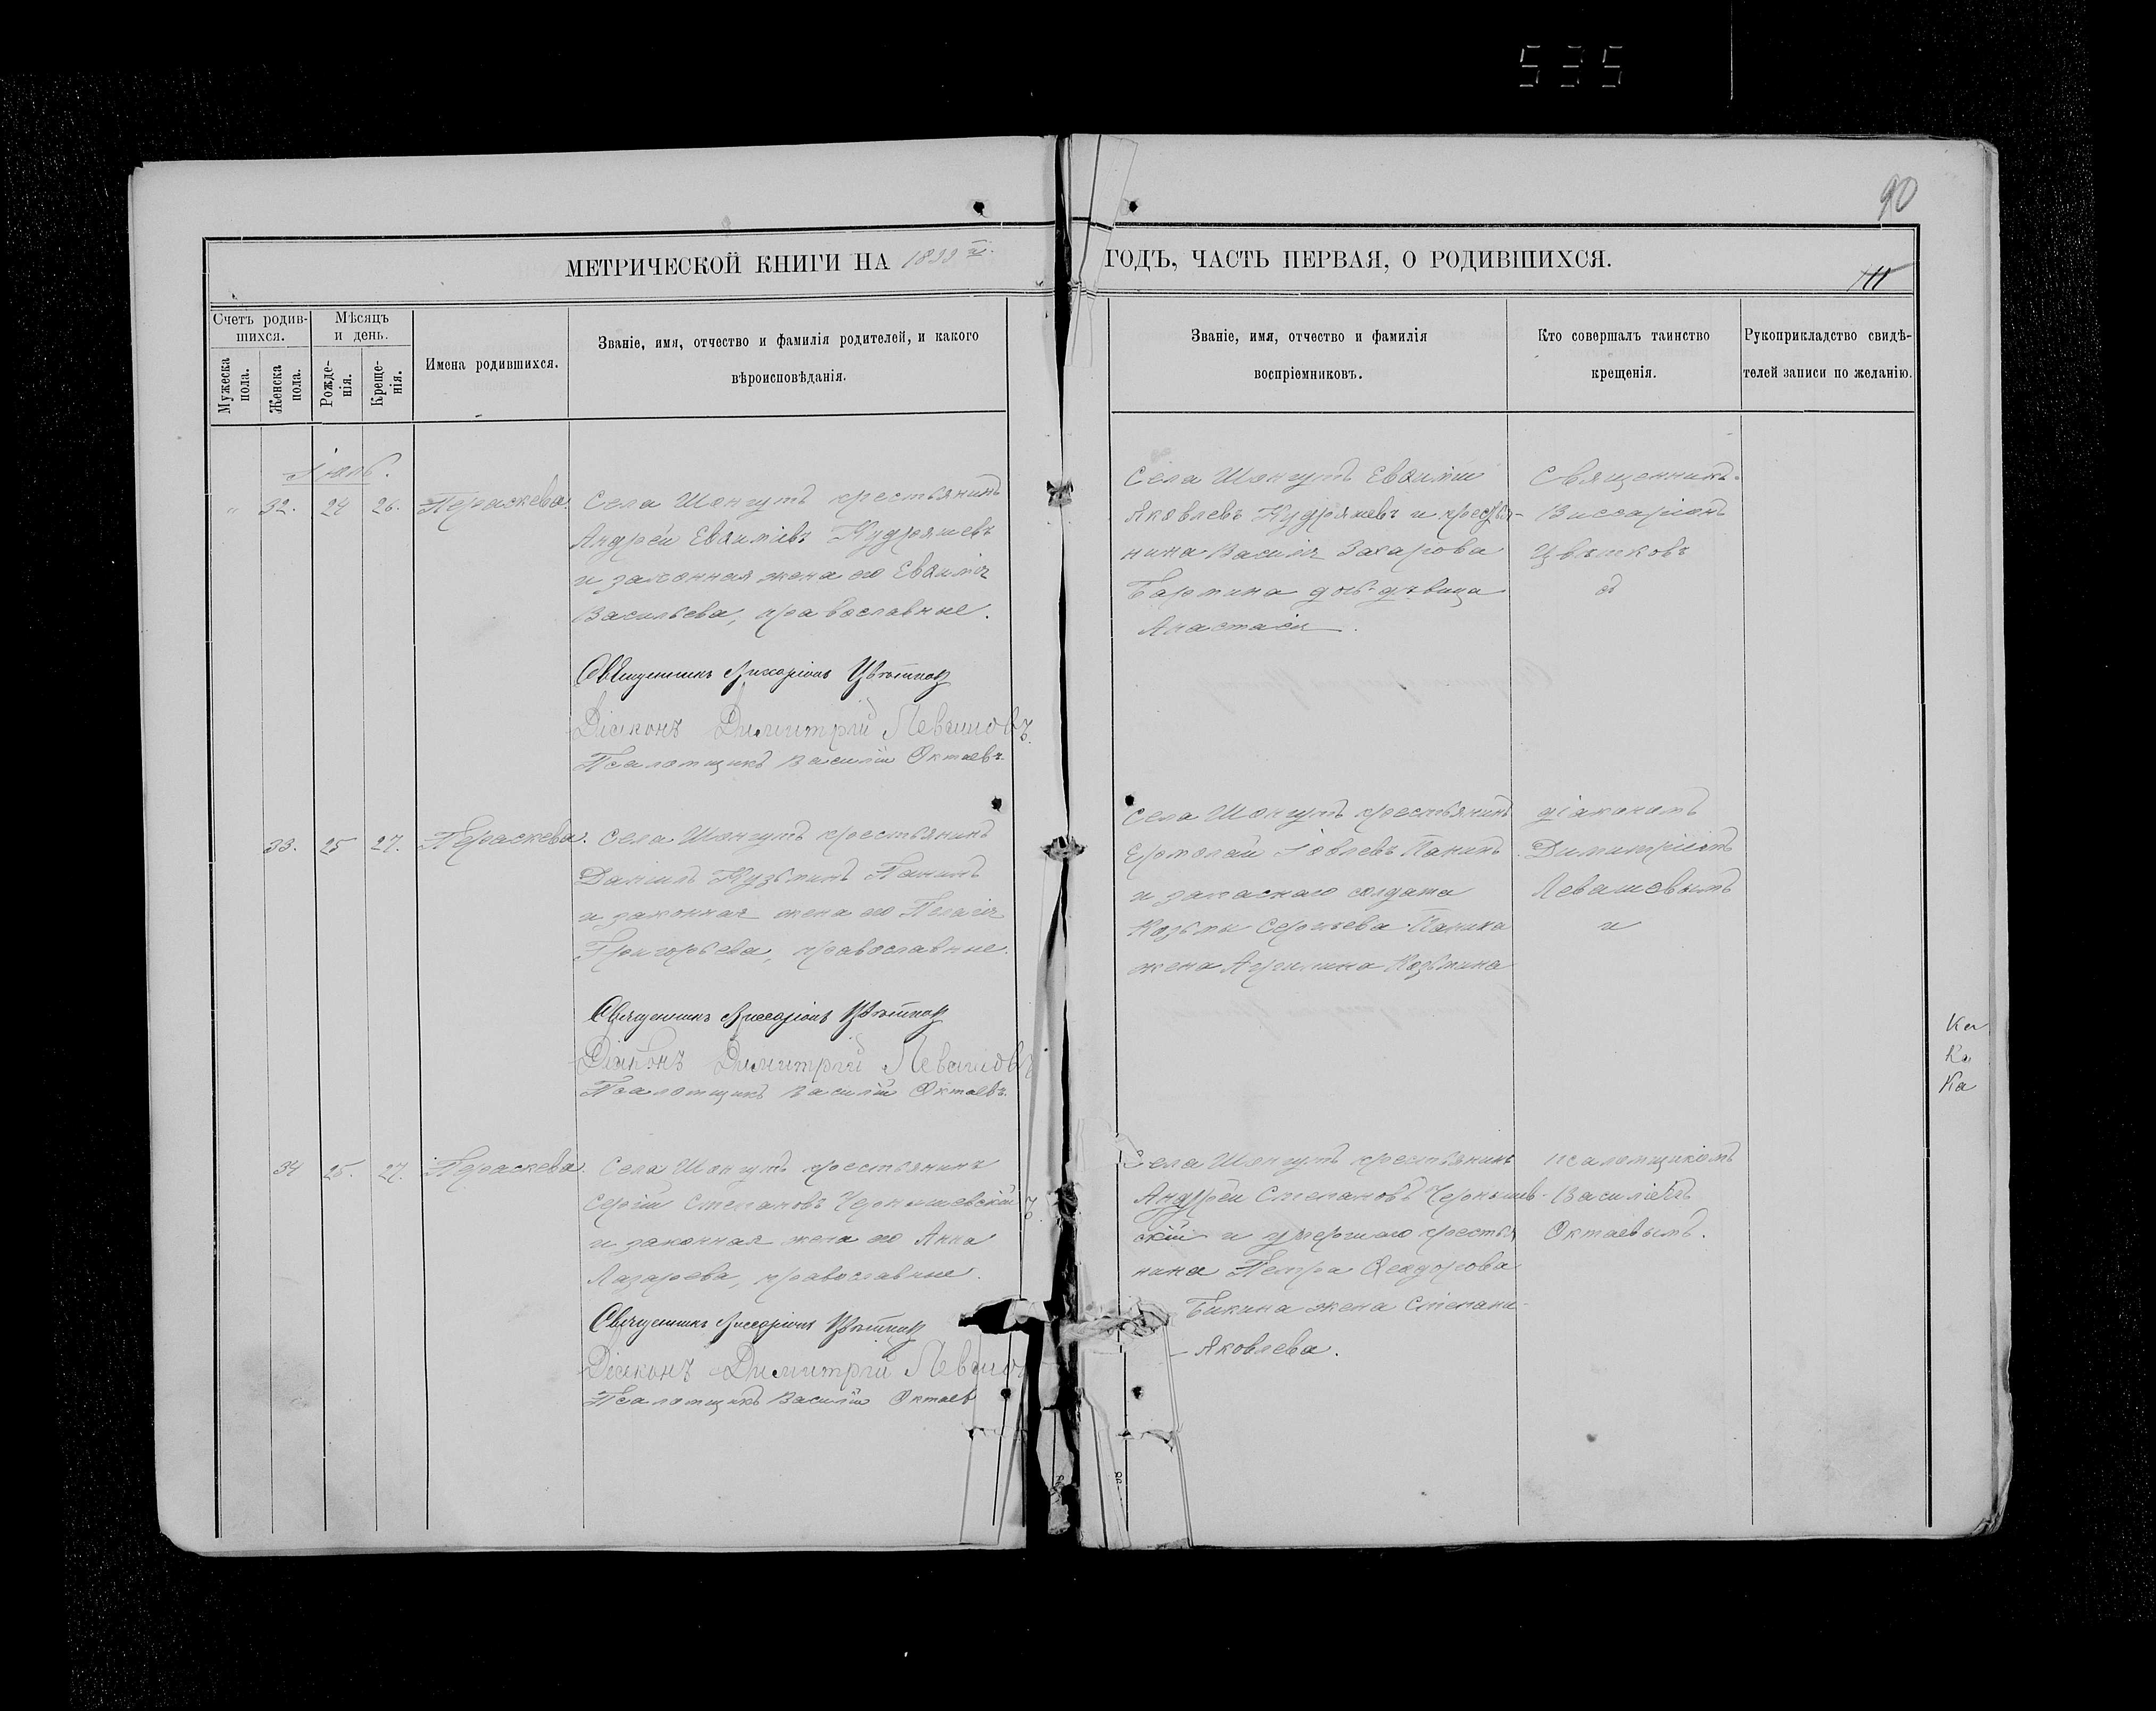 535
90
МЕТРИЧЕСКОЙ КНИГИ НА 1899 й.
ГОДЪ, ЧАСТЬ ПЕРВАЯ, О РОДИВШИХСЯ.
Счетъ родив-
шихся.
Мѣсяцъ
и день.
Мужеска
пола.
Женска
пола.
Рожде-
нія.
Креще-
нія.
Имена родившихся.
Званіе, имя, отчество и фамилія родителей, и какого
вѣроисповѣданія.
Званіе, имя, отчество и фамилія
воспріемниковъ.
Кто совершалъ таинство
крещенія.
Рукоприкладство свидѣ-
телей записи по желанію.
„ 32. 24 26. Параскева.
Села Шонгутъ крестьянинъ
Андрей Евѳиміевъ Кудряшевъ
и законная жена его Евѳимія
Васильева, православные.
Священникъ Виссаріонъ Цвѣтковъ
Діаконъ Димитрій Левашовъ.
Псаломщикъ Василій Октаевъ.
Села Шонгутъ Евѳимій
Яковлевъ Кудряшевъ и крестья-
нина Василія Захарова
Бармина дочь-дѣвица
Анастасія.
Священникъ
Виссаріонъ
Цвѣтковъ
33. 25 27. Параскева.
Села Шонгутъ крестьянинъ
Даніилъ Кузьминъ Панинъ
и законная жена его Пелагія
Григорьева, православные.
Священникъ Виссаріонъ Цвѣтковъ
Діаконъ Димитрій Левашовъ
Псаломщикъ Василій Октаевъ.
Села Шонгутъ крестьянинъ
Ермолай Іовлевъ Панинъ
и запаснаго солдата
Козьмы Сергѣева Панина
жена Акилина Козьмина
діакономъ
Димитріемъ
Левашовымъ
и
Ка
Ка
Ка
34 25. 27. Параскева.
Села Шонгутъ крестьянинъ
Сергій Степановъ Чернышевскій
и законная жена его Анна
Лазарева, православные.
Священникъ Виссаріонъ Цвѣтковъ
Діаконъ Димитрій Левашо
Псаломщикъ Василій Октаев
Села Шонгутъ крестьянинъ
Андрей Степановъ Чернышев-
скій и умершаго крестья
нина Петра Ѳеодорова
Бикина жена Степани-
Яковлева.
псаломщикомъ
Василіемъ
Октаевымъ.